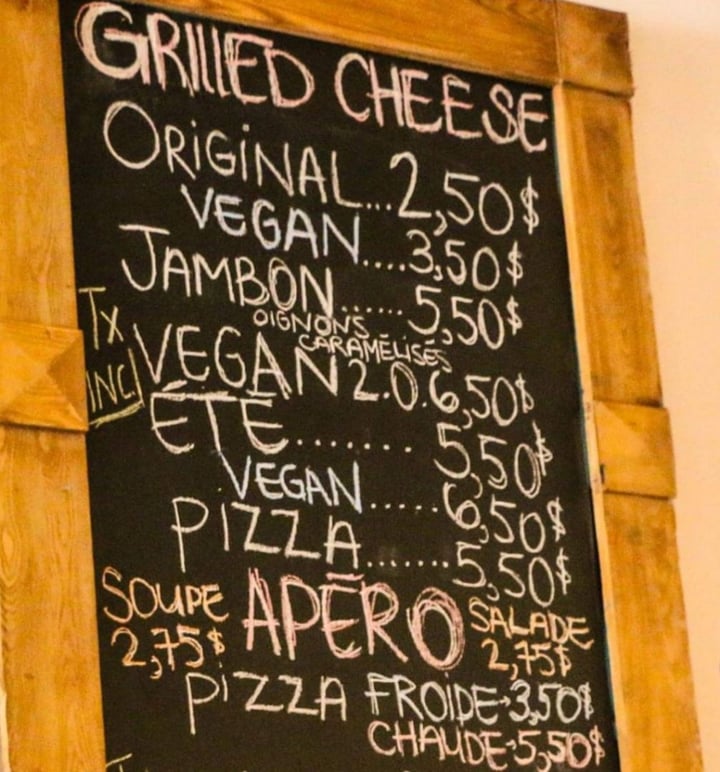 GRILLED CHEESE
ORIGINAL...2,50$
VEGAN....3,50$
JAMBON......5,50$
OIGNONS
CARAMÉLISÉS
TX
INCL
VEGAN 2.0.6,50$
ÉTÉ........5,50$
VEGAN.....6,50$
PIZZA.......5,50$
SOUPE
2,75$
APÉRO
SALADE
2,75$
PIZZA FROIDE-3,50$
CHAUDE-5,50$